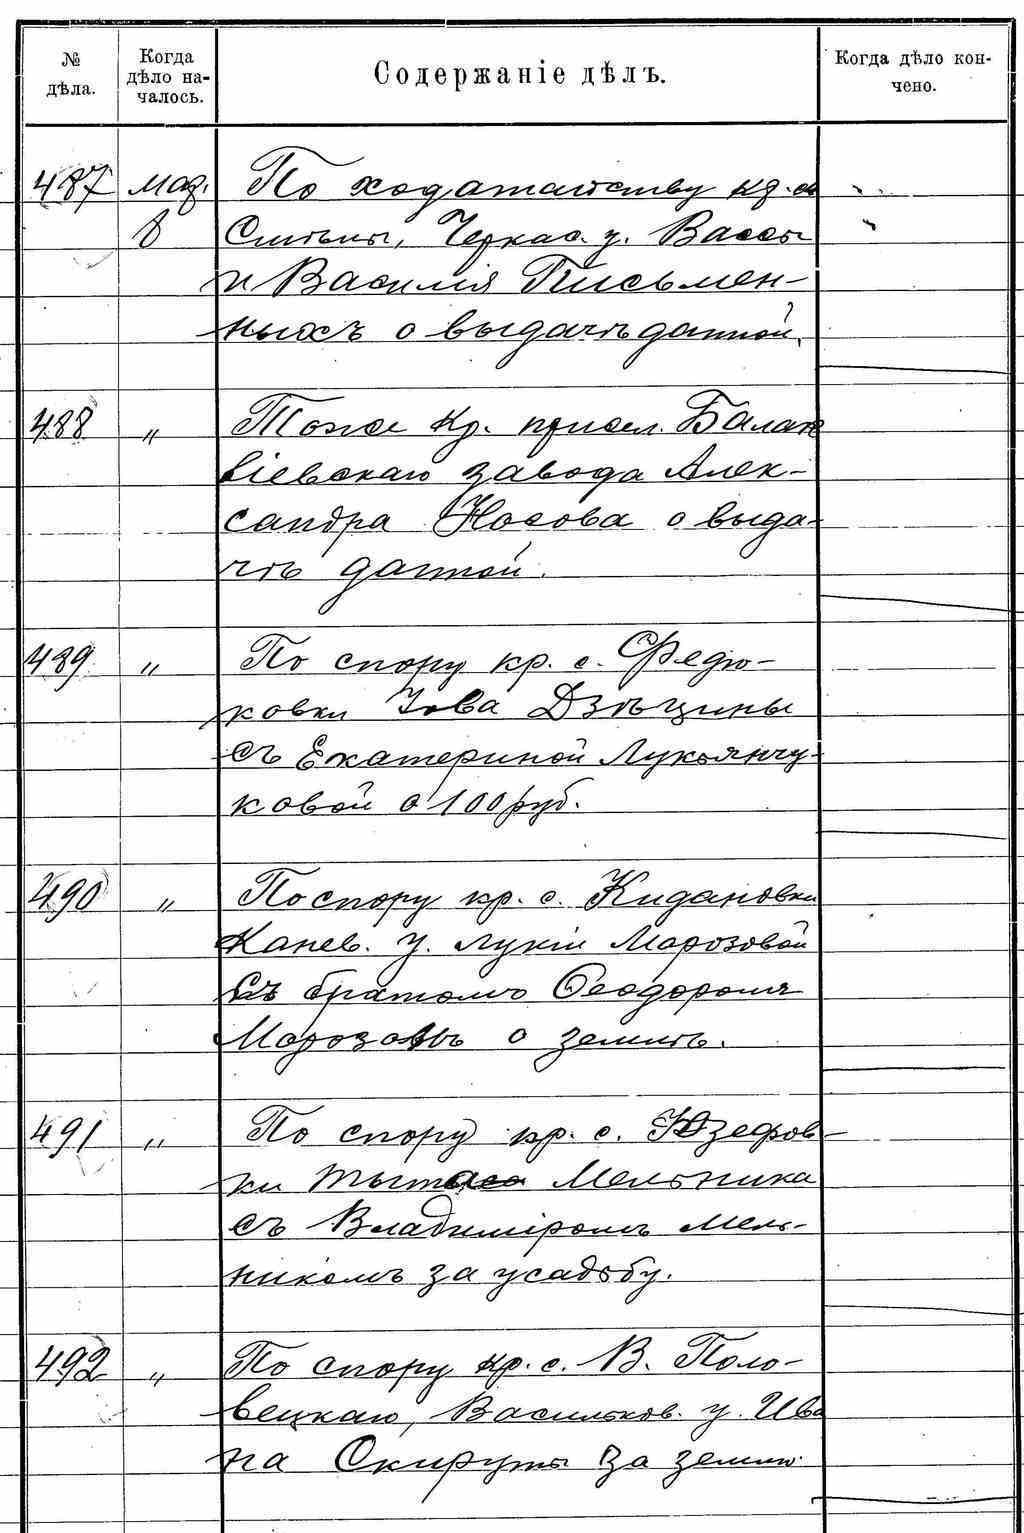 № дѣла.
Когда дѣло на-
чалось.
Содержаніе дѣлъ.
Когда дѣло кон-
чено.
487 Мая По ходатайству кр. с.
8 Смѣлы, Черкас. у. Вассы
и Василія Письмен-
ныхъ о выдачѣ данной.
488 „ Тоже кр. присел.
завода Алек-
сандра Носова о выда-
чѣ данной.
489 „ По спору кр. с. Федю-
ковки Іова Дзѣцины
съ Екатериной Лукьянчу-
ковой о 100 руб.
490 „ По спору кр. с. Кидановки
Канев. у. Лукіи Морозовой
съ братомъ Ѳеодоромъ
Морозовъ о землѣ.
491 „ По спору кр. с. Юзефов-
ки Мельника
съ Владиміромъ Мель-
никомъ за усадьбу.
492 „ По спору кр. с. В. Поло-
вецкаго, Васильков. у. Ива
на Окируты за землю.